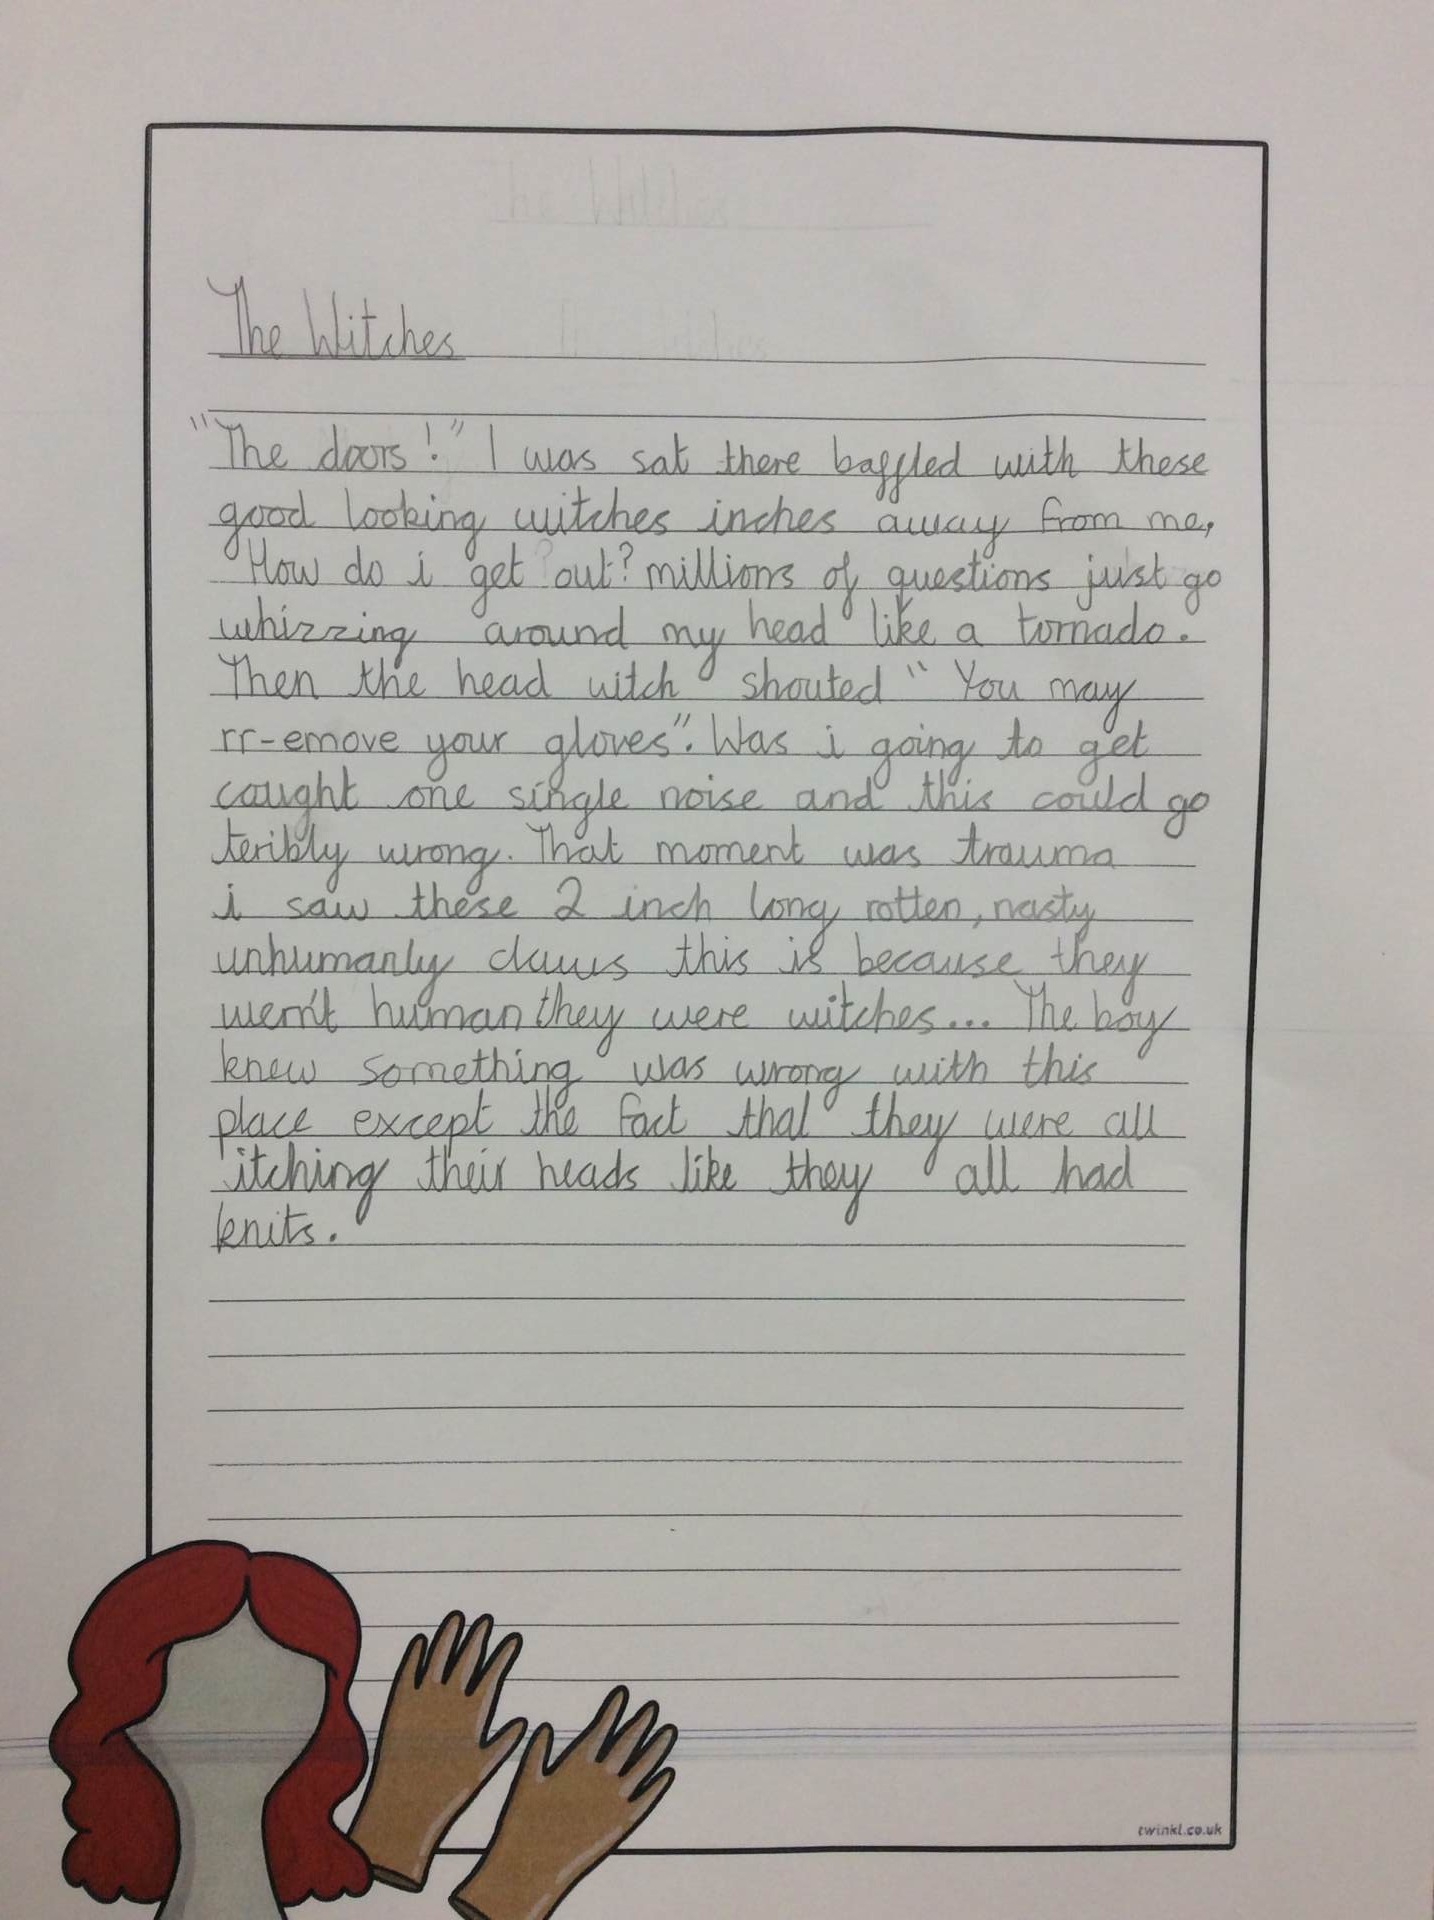 The Witches
"The doors!" I was sat there baffled with these
good looking witches inches away from me,
How do i get out? millions of questions just go
whizzing around my head like a tornado.
Then the head witch shouted "You may
rr-emove your gloves". Was i going to get
caught one single noise and this could go
teribly wrong. That moment was trauma
i saw these 2 inch long rotten, nasty
unhumanly claws this is because they
wern't human they were witches... The boy
knew something was wrong with this
place except the fact that they were all
itching their heads like they all had
knits.
twinkl.co.uk